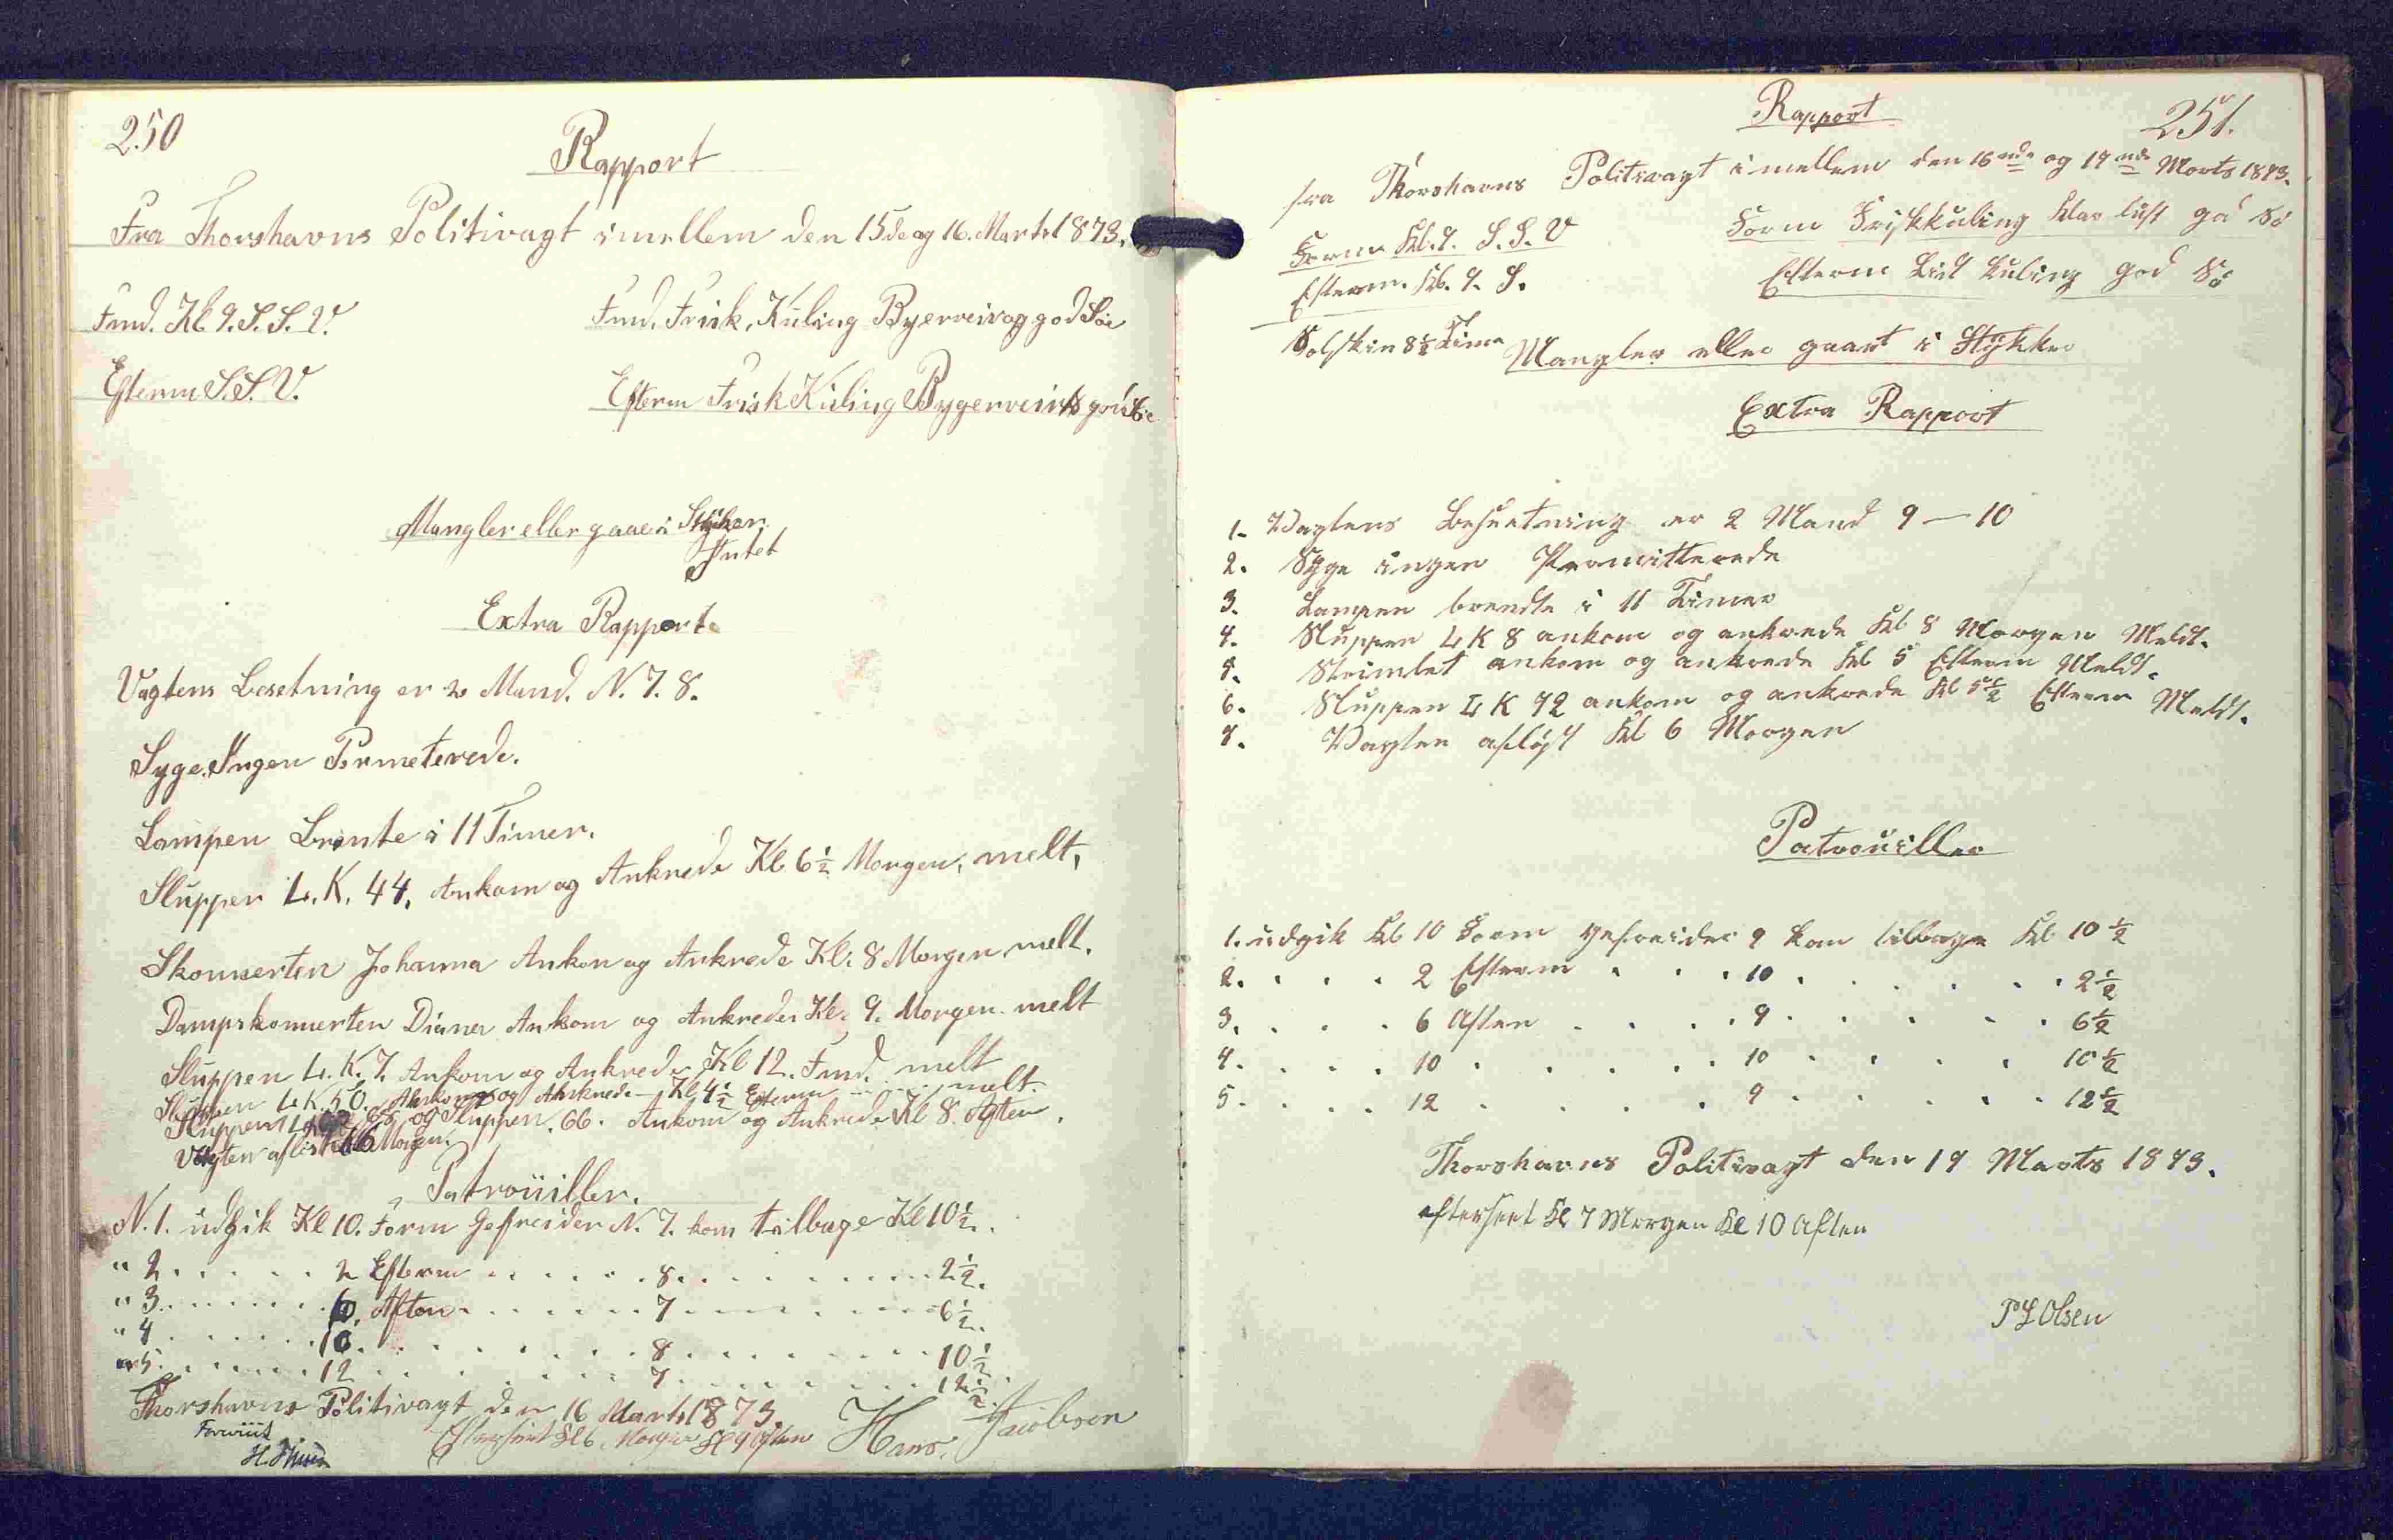 250
Rapport
Fra Thorshavns Politivagt imellem den 15de og 16. Marts 1873.
Fmd. Kl 9. S. S. V.
Fmd. Frisk, Kuling Byerveir og god Sø
Efterm S. S. V.
Efterm Frisk Kuling Bygerveir og god Sø
Mangler eller gaae i Stykker
Intet
Extra Rapport.
Vagtens Besetning er 2 Mand. N. 7. 8.
Syge. Ingen Permeterede.
Lampen Brente i 11 Timer.
Sluppen L. K. 44. Ankom og Ankrede Kl 6 1/2 Morgen, melt,
Skonnerten Johanna Ankom og Ankrede Kl. 8 Morgen melt.
Dampskonnerten Diana Ankom og Ankrede Kl. 9. Morgen melt
Sluppen L. K. 7. Ankom og Ankrede Kl 12. Fmd. melt
Sluppen L. K. 50. Ankom og Ankrede — Kl 4 1/2 Efterm ... melt.
Sluppen og Sluppen. 66. Ankom og Ankrede Kl 8. Aften.
Vagten afløst Kl 6 Morgen.
Patrouiller.
N. 1. udgik Kl 10. Form Gefreider N. 7. kom tilbage Kl 10 1/2.
" 2. . . . . . 2 Efterm . . . . . . 8. . . . . . . . 2 1/2.
" 3. . . . . . 6. Aften . . . . . . 7 . . . . . . . 6 1/2.
" 4 . . . . . . 10. . . . . . . . . 8 . . . . . . . . 10 1/2
" 5. . . . . . 12 . . . . . . . . 7. . . . . . . . 12 1/2.
Thorshavns Politivagt den 16 Marts 1873.
Efterseet Kl 6 Morgen Kl 9 Aften Hans. Jacobsen
Forevist
251.
Rapport
fra Thorshavns Politivagt imellem den 16nde og 17nde Marts 1873.
Form Kl. 9. S. S. V
Form Friskkuling klar luft god Sø
Efterm. Kl. 9. S.
Efterm Lidt kuling god Sø
Solskin 8 1/2 Time
Mangler eller gaaet i Stykker
Extra Rapport
1. Vagtens besætning er 2 Mand 9 — 10
2. Syge ingen Permitterede
3. Lampen brendte i 11 Timer
4. Sluppen L K 8 ankom og ankrede Kl 8 Morgen Meldt.
5. Strimlet ankom og ankrede Kl 5 Efterm Meldt.
6. Sluppen L K 72 ankom og ankrede Kl 5 1/2 Efterm Meldt.
7. Vagten afløst Kl 6 Morgen
Patrouiller
1. udgik Kl 10 Form gefreider 9 kom tilbage Kl 10 1/2
2. . . . 2 Efterm . . . 10 . . . . . . 2 1/2
3. . . . 6 Aften . . . . 9 . . . . . . 6 1/2
4. . . . 10 . . . . . 10 . . . . . 10 1/2
5 . . . . 12 . . . . . 9 . . . . . . 12 1/2
Thorshavns Politivagt den 17 Marts 1873.
efterseet Kl 7 Morgen Kl 10 Aften
P L Olsen